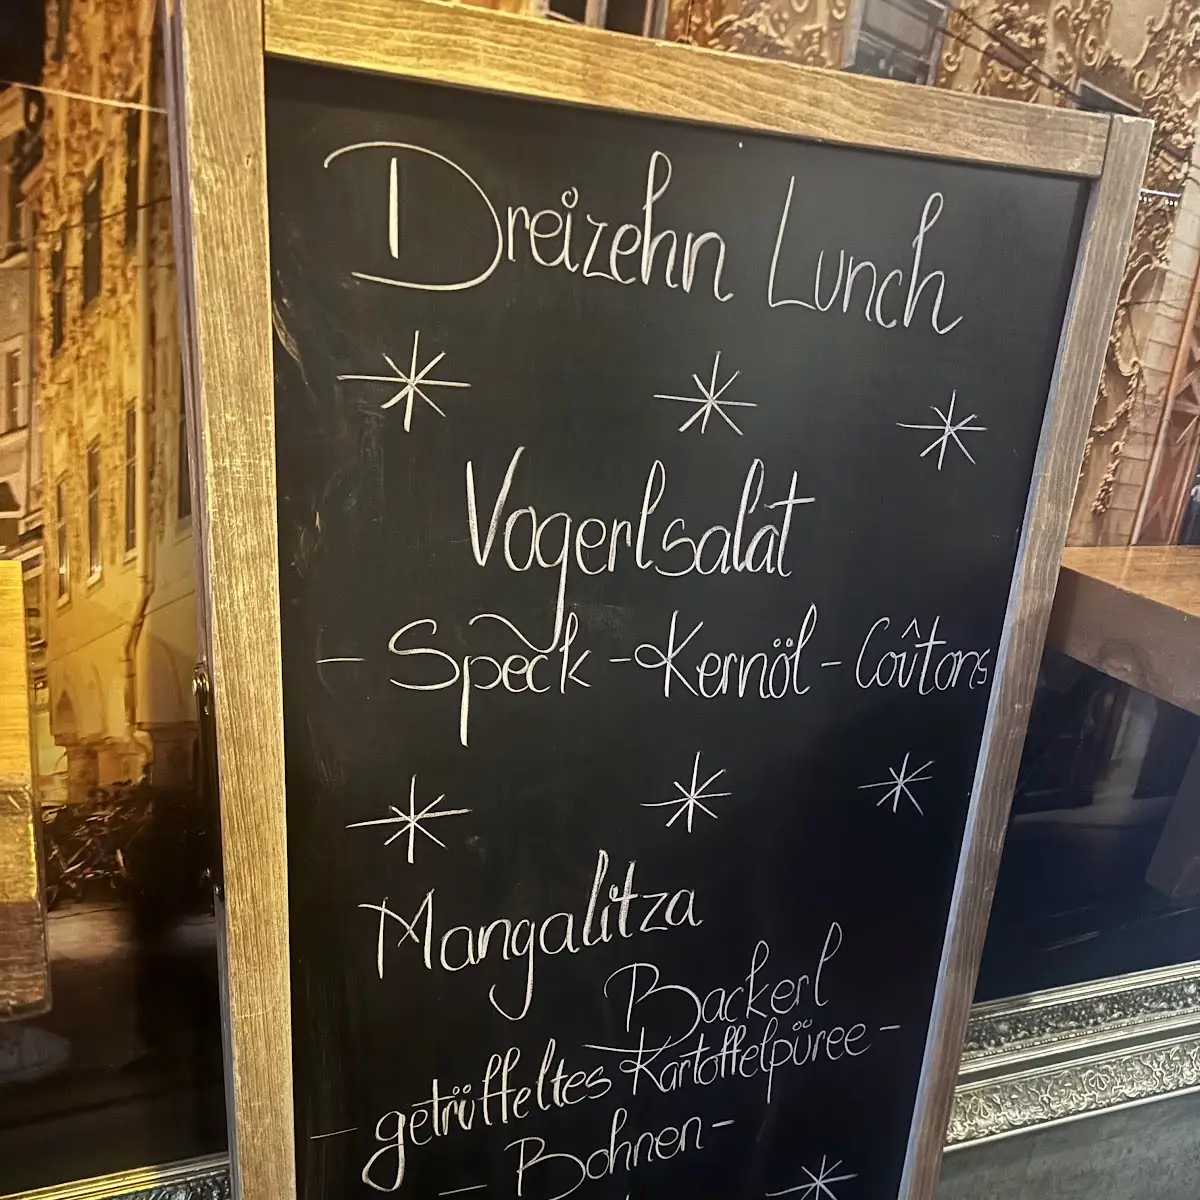 Dreizehn Lunch
Vogerlsalat
- Speck - Kernöl - Coûtons
Mangalitza
Backerl
- getrüffeltes Kartoffelpüree -
- Bohnen -